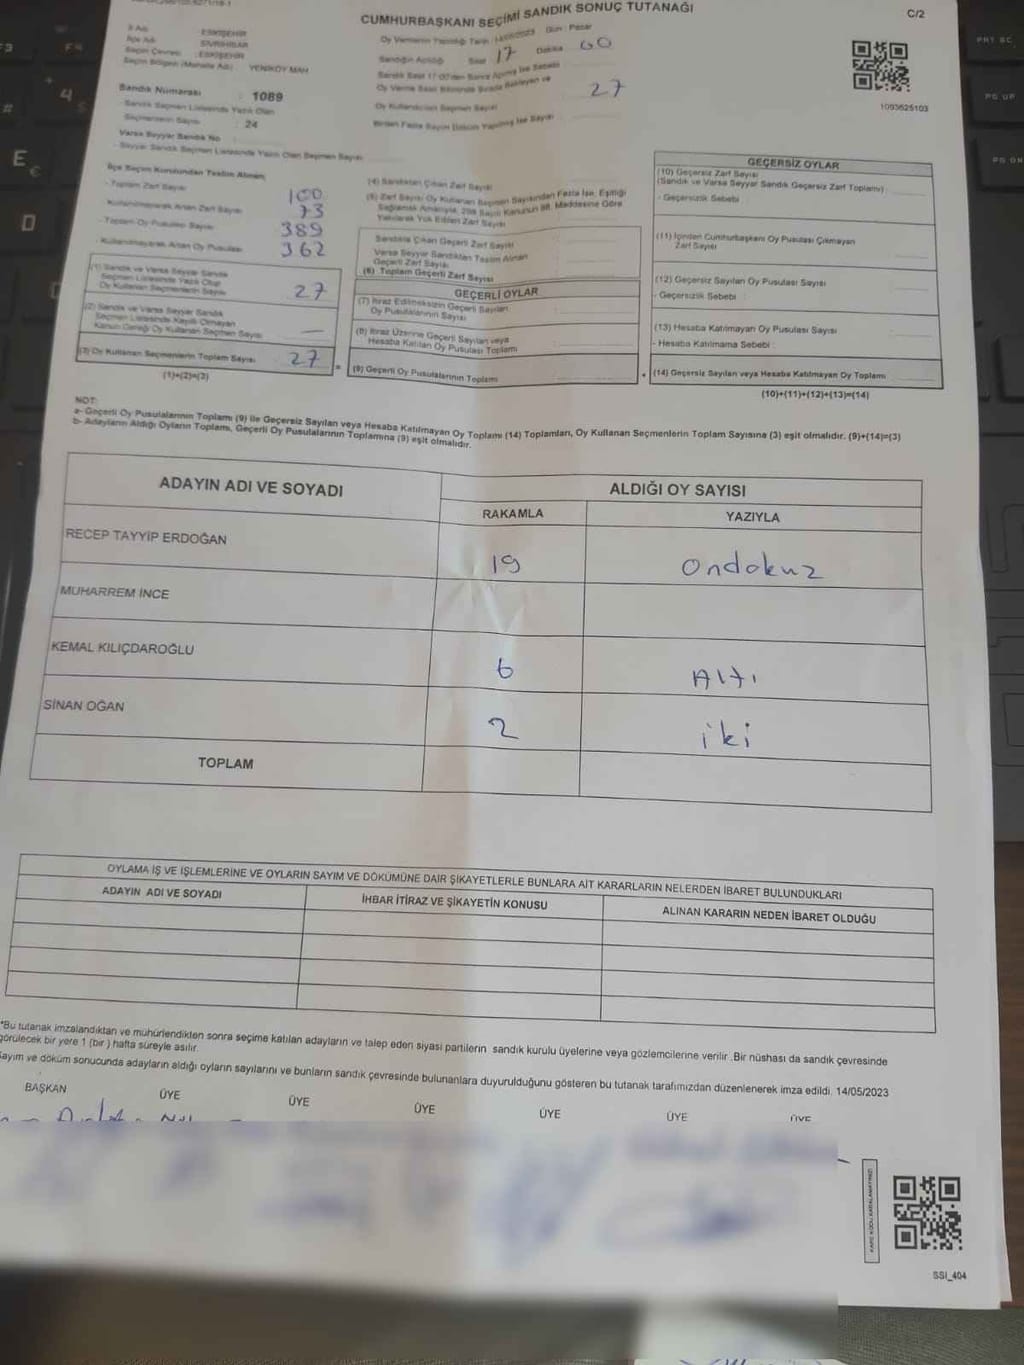 C/2
CUMHURBAŞKANI SEÇİMİ SANDIK SONUÇ TUTANAĞI
İl Adı : ESKİŞEHİR
İlçe Adı : SİVRİHİSAR
Seçim Çevresi : ESKİŞEHİR
Seçim Bölgesi (Mahalle Adı) : YENİKÖY MAH
Sandık Numarası : 1089
Sandık Seçmen Listesinde Yazılı Olan
Seçmenlerin Sayısı : 24
Varsa Seyyar Sandık No
- Seyyar Sandık Seçmen Listesinde Yazılı Olan Seçmen Sayısı
Oy Vermenin Yapıldığı Tarih : 14/05/2023 Gün : Pazar
Sandığın Açıldığı Saat 17 Dakika 00
Sandık Saat 17:00'den Sonra Açılmış İse Sebebi
Oy Verme Saati Bitiminde Sırada Bekleyen ve
Oy Kullandırılan Seçmen Sayısı 27
Birden Fazla Sayım Döküm Yapılmış İse Sayısı
1093625103
İlçe Seçim Kurulundan Teslim Alınan;
- Toplam Zarf Sayısı 100
Kullanılmayarak Artan Zarf Sayısı 73
- Toplam Oy Pusulası Sayısı 389
- Kullanılmayarak Artan Oy Pusulası 362
(1) Sandık ve Varsa Seyyar Sandık
Seçmen Listesinde Yazılı Olup
Oy Kullanan Seçmenlerin Sayısı 27
(2) Sandık ve Varsa Seyyar Sandık
Seçmen Listesinde Kayıtlı Olmayan
Kanun Gereği Oy Kullanan Seçmen Sayısı —
(3) Oy Kullanan Seçmenlerin Toplam Sayısı 27
(1)+(2)=(3)
(4) Sandıktan Çıkan Zarf Sayısı
(5) Zarf Sayısı Oy Kullanan Seçmen Sayısından Fazla İse, Eşitliği
Sağlamak Amacıyla, 298 Sayılı Kanunun 98. Maddesine Göre
Yakılarak Yok Edilen Zarf Sayısı
Sandıkta Çıkan Geçerli Zarf Sayısı
Varsa Seyyar Sandıktan Teslim Alınan
Geçerli Zarf Sayısı
(6) Toplam Geçerli Zarf Sayısı
GEÇERLİ OYLAR
(7) İtiraz Edilmeksizin Geçerli Sayılan
Oy Pusulalarının Sayısı
(8) İtiraz Üzerine Geçerli Sayılan veya
Hesaba Katılan Oy Pusulası Toplamı
(9) Geçerli Oy Pusulalarının Toplamı
GEÇERSİZ OYLAR
(10) Geçersiz Zarf Sayısı
(Sandık ve Varsa Seyyar Sandık Geçersiz Zarf Toplamı)
- Geçersizlik Sebebi :
(11) İçinden Cumhurbaşkanı Oy Pusulası Çıkmayan
Zarf Sayısı
(12) Geçersiz Sayılan Oy Pusulası Sayısı
- Geçersizlik Sebebi :
(13) Hesaba Katılmayan Oy Pusulası Sayısı
- Hesaba Katılmama Sebebi :
(14) Geçersiz Sayılan veya Hesaba Katılmayan Oy Toplamı
(10)+(11)+(12)+(13)=(14)
NOT:
a- Geçerli Oy Pusulalarının Toplamı (9) ile Geçersiz Sayılan veya Hesaba Katılmayan Oy Toplamı (14) Toplamları, Oy Kullanan Seçmenlerin Toplam Sayısına (3) eşit olmalıdır. (9)+(14)=(3)
b- Adayların Aldığı Oyların Toplamı, Geçerli Oy Pusulalarının Toplamına (9) eşit olmalıdır.
ADAYIN ADI VE SOYADI
ALDIĞI OY SAYISI
RAKAMLA YAZIYLA
RECEP TAYYİP ERDOĞAN 19 Ondokuz
MUHARREM İNCE
KEMAL KILIÇDAROĞLU 6 Altı
SİNAN OĞAN 2 iki
TOPLAM
OYLAMA İŞ VE İŞLEMLERİNE VE OYLARIN SAYIM VE DÖKÜMÜNE DAİR ŞİKAYETLERLE BUNLARA AİT KARARLARIN NELERDEN İBARET BULUNDUKLARI
ADAYIN ADI VE SOYADI İHBAR İTİRAZ VE ŞİKAYETİN KONUSU ALINAN KARARIN NEDEN İBARET OLDUĞU
*Bu tutanak imzalandıktan ve mühürlendikten sonra seçime katılan adayların ve talep eden siyasi partilerin sandık kurulu üyelerine veya gözlemcilerine verilir .Bir nüshası da sandık çevresinde
görülecek bir yere 1 (bir ) hafta süreyle asılır.
Sayım ve döküm sonucunda adayların aldığı oyların sayılarını ve bunların sandık çevresinde bulunanlara duyurulduğunu gösteren bu tutanak tarafımızdan düzenlenerek imza edildi. 14/05/2023
BAŞKAN ÜYE ÜYE ÜYE ÜYE ÜYE ÜYE
SSI_404
F4
4
E
€
PRT SC
PG UP